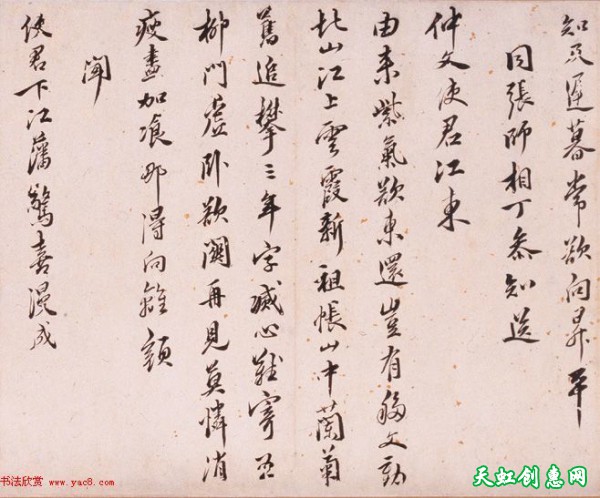 知足遲暮常欲向昇平
同張師相丁參知送
仲文使君江東
由来紫氣欲東還豈有移文動
北山江上雲霞新祖帳山中蘭菊
舊追攀三年字滅心難寄五
柳門虛卧欲關再見莫憐消
瘦盡加飡那得向離顔
聞
使君下江藩驚喜漫成
书法欣赏 www.yac8.com
天虹创惠网